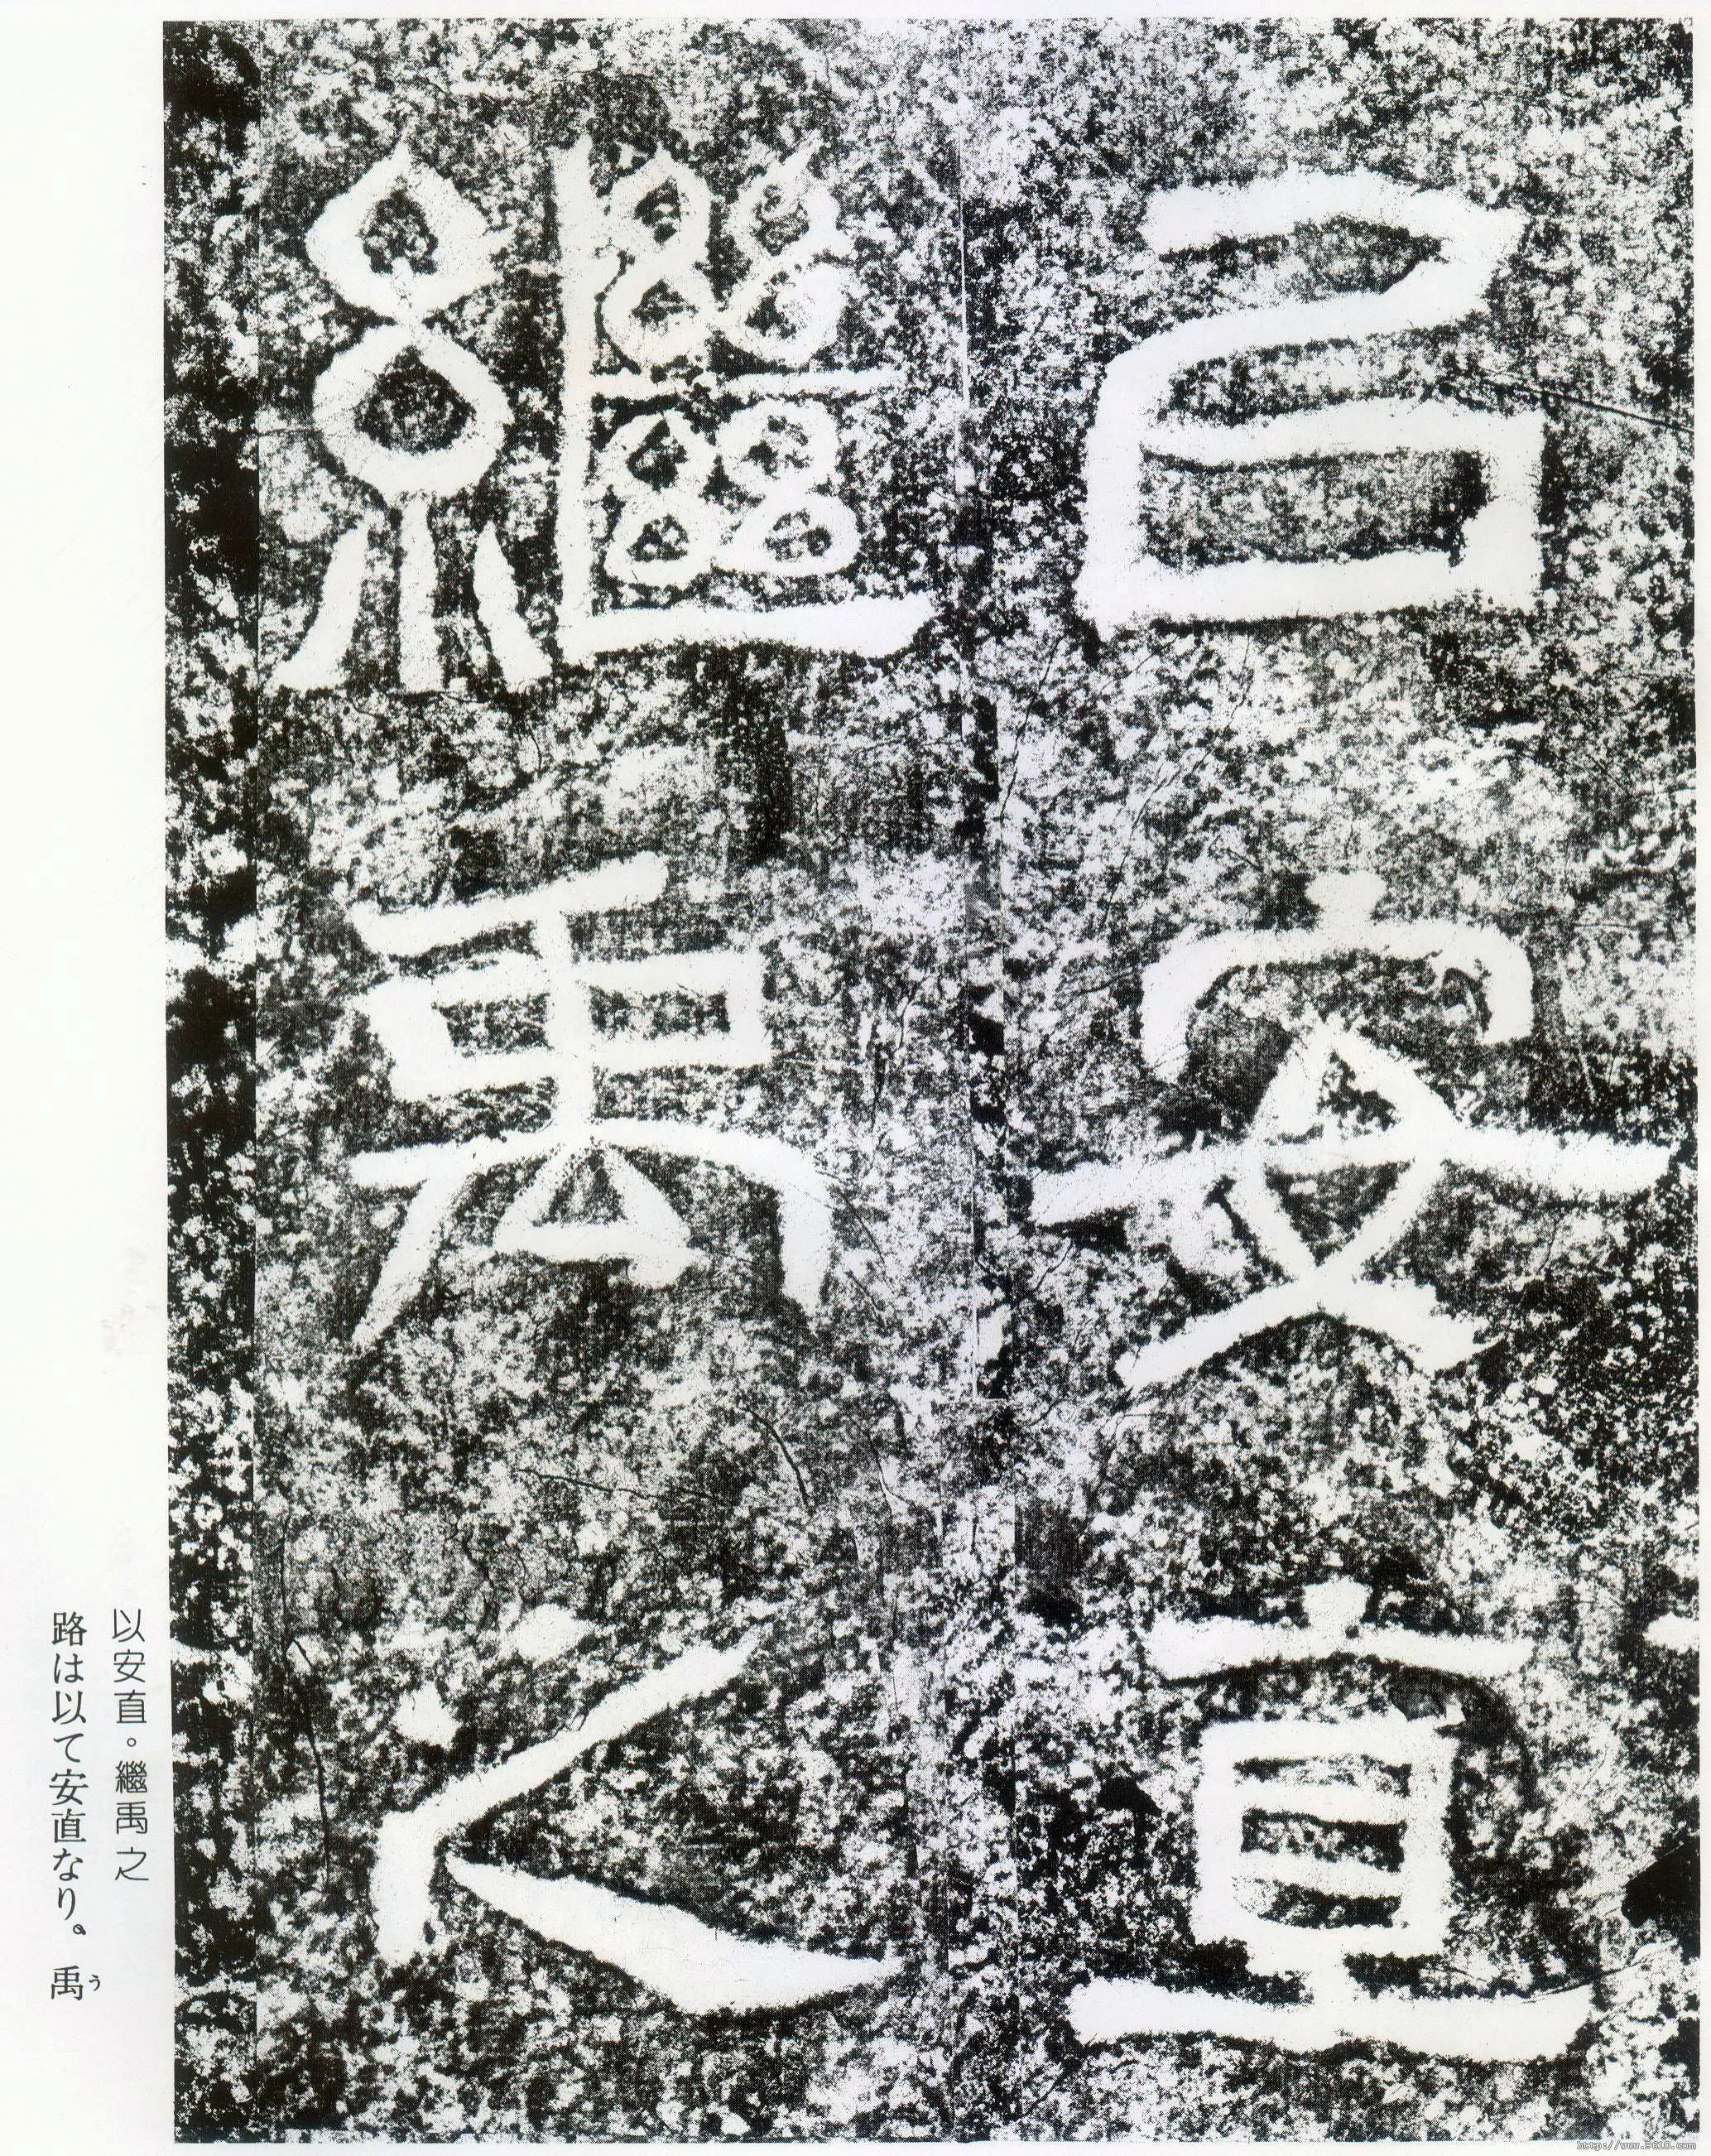 㠯安直
繼禹之
以安直。繼禹之
路は以て安直なり。禹う
http://www.9610.com